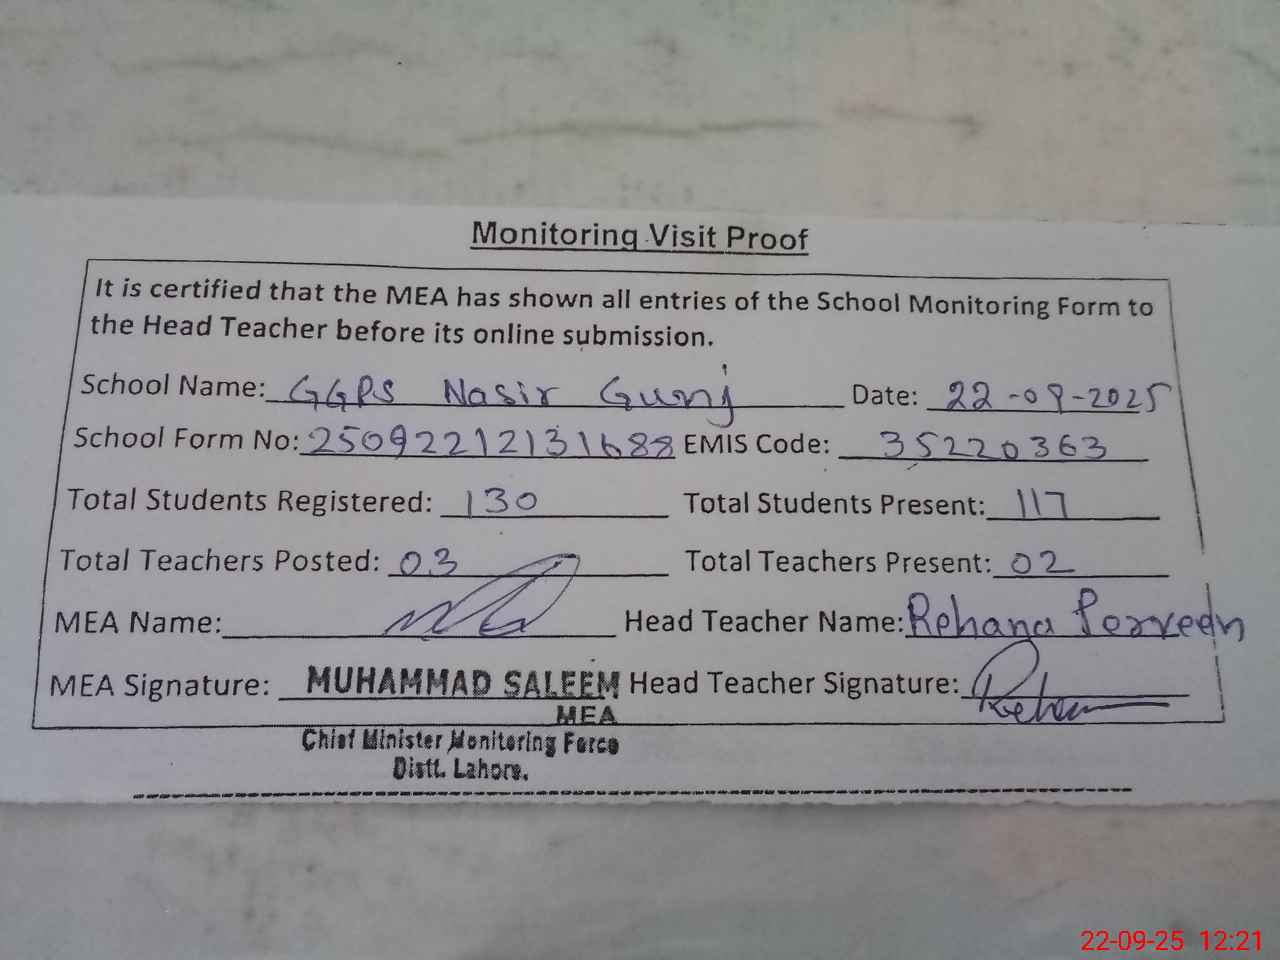 Monitoring Visit Proof
It is certified that the MEA has shown all entries of the School Monitoring Form to
the Head Teacher before its online submission.
School Name: GGPS Nasir Gunj Date: 22-09-2025
School Form No: 25092212131688 EMIS Code: 35220363
Total Students Registered: 130 Total Students Present: 117
Total Teachers Posted: 03 Total Teachers Present: 02
MEA Name: Head Teacher Name: Rehana Perveen
MEA Signature: MUHAMMAD SALEEM Head Teacher Signature: Rehana
MEA
Chief Minister Monitoring Force
Distt. Lahore.
22-09-25 12:21